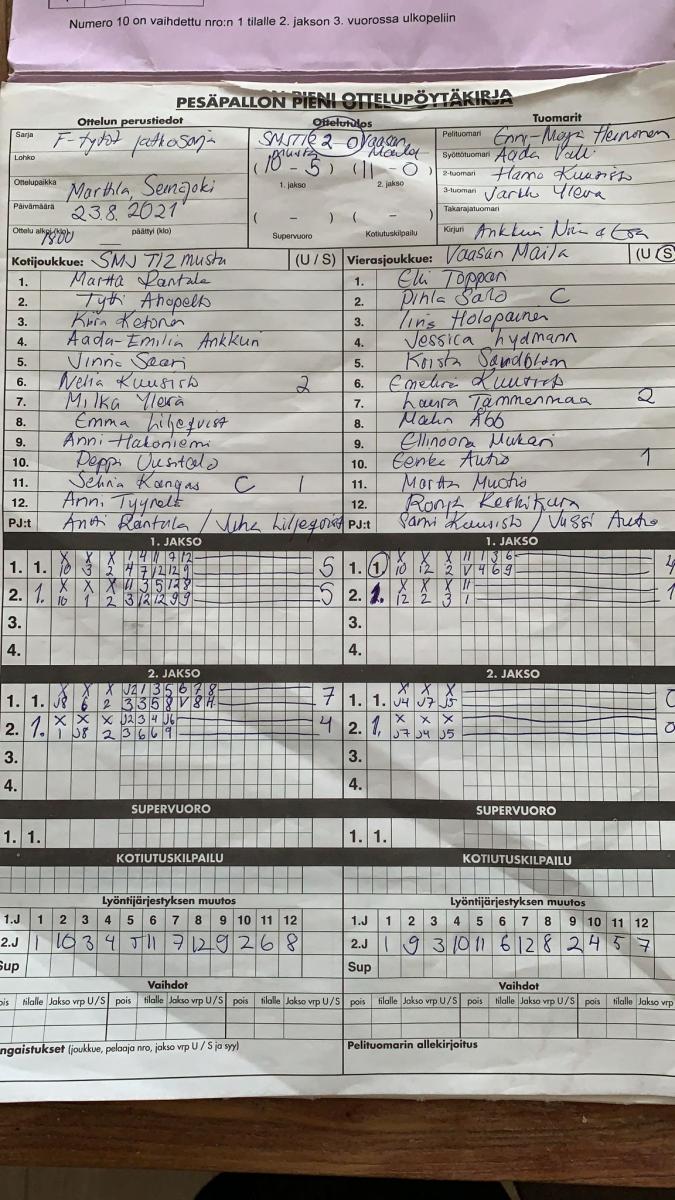 Numero 10 on vaihdettu nro:n 1 tilalle 2. jakson 3. vuorossa ulkopeliin
PESÄPALLON PIENI OTTELUPÖYTÄKIRJA
Ottelun perustiedot
Sarja F-tytöt jatkosarja
Lohko
Ottelupaikka Marthla, Seinäjoki
Päivämäärä 23.8.2021
Ottelu alkoi (klo) 1800 päättyi (klo)
Ottelutulos
2 0 Vaasan Maila
musta
(10 - 5) (11 - 0)
1. jakso 2. jakso
( - ) ( - )
Supervuoro Kotiutuskilpailu
Tuomarit
Pelituomari Enny-Maja Heinonen
Syöttötuomari Aada
2-tuomari Hanna Kuusisto
3-tuomari Jarkko Ylevä
Takarajatuomari
Kirjuri Ankkuri
Kotijoukkue: SMJ T/2 musta (U / S)
1. Martta Rantala
2. Tytti Ahopelto
3. Kiira Ketonen
4. Aada-Emilia Ankkuri
5. Vinna Saari
6. Nelia Kuusisto 2
7. Milka Ylevä
8. Emma Liljeqvist
9. Anni Hakoniemi
10. Peppi Uusitalo
11. Selma Kangas C 1
12. Anni Tyynelä
PJ:t Antti Rantala / Juha Liljeqvist
Vierasjoukkue: Vaasan Maila (U S
1. Elli Toppari
2. Pihla Salo C
3. Iiris Holopainen
4. Jessica Lydmann
5. Krista Sandblom
6. Emeliina Kuusisto
7. Laura Tammenmaa 2
8. Malin Abb
9. Ellinoora Mukari
10. Eerika Autio 1
11. Martta Muotio
12. Ronja Keskikuru
PJ:t Sami Kuusisto / Jussi Autio
1. JAKSO
1. 1. X X X 1 4 11 7 12
10 3 2 4 7 12 12 9 5
2. 1. X X X 11 3 5 12 8
10 1 2 3 12 12 9 9 5
3.
4.
1. JAKSO
1. 1. X X X 11 1 3 6
10 12 2 V 4 6 9 4
2. 1. X X X 11
12 2 3 1 1
3.
4.
2. JAKSO
1. 1. X X X J2 1 3 5 6 7 8
J8 6 2 3 3 5 8 V 8 H 7
2. 1. X X X J2 3 4 J6
1 J8 2 3 6 6 9 4
3.
4.
2. JAKSO
1. 1. X X X
J4 J7 J5 0
2. 1. X X X
J7 J4 J5 0
3.
4.
SUPERVUORO
1. 1.
SUPERVUORO
1. 1.
KOTIUTUSKILPAILU
KOTIUTUSKILPAILU
Lyöntijärjestyksen muutos
1.J 1 2 3 4 5 6 7 8 9 10 11 12
2.J 1 10 3 4 5 11 7 12 9 2 6 8
Sup
Lyöntijärjestyksen muutos
1.J 1 2 3 4 5 6 7 8 9 10 11 12
2.J 1 9 3 10 11 6 12 8 2 4 5 7
Sup
Vaihdot
ois tilalle Jakso vrp U/S pois tilalle Jakso vrp U/S pois tilalle Jakso vrp U/S
Vaihdot
pois tilalle Jakso vrp U/S pois tilalle Jakso vrp U/S pois tilalle Jakso vrp
ngaistukset (joukkue, pelaaja nro, jakso vrp U / S ja syy)
Pelituomarin allekirjoitus